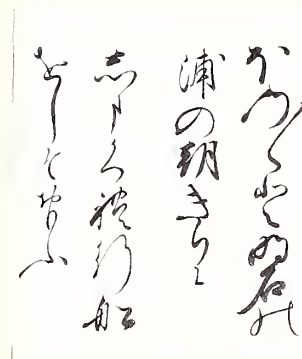 ほのゝと明石の
浦の朝きりに
志まかくれ行船
をしそおもふ